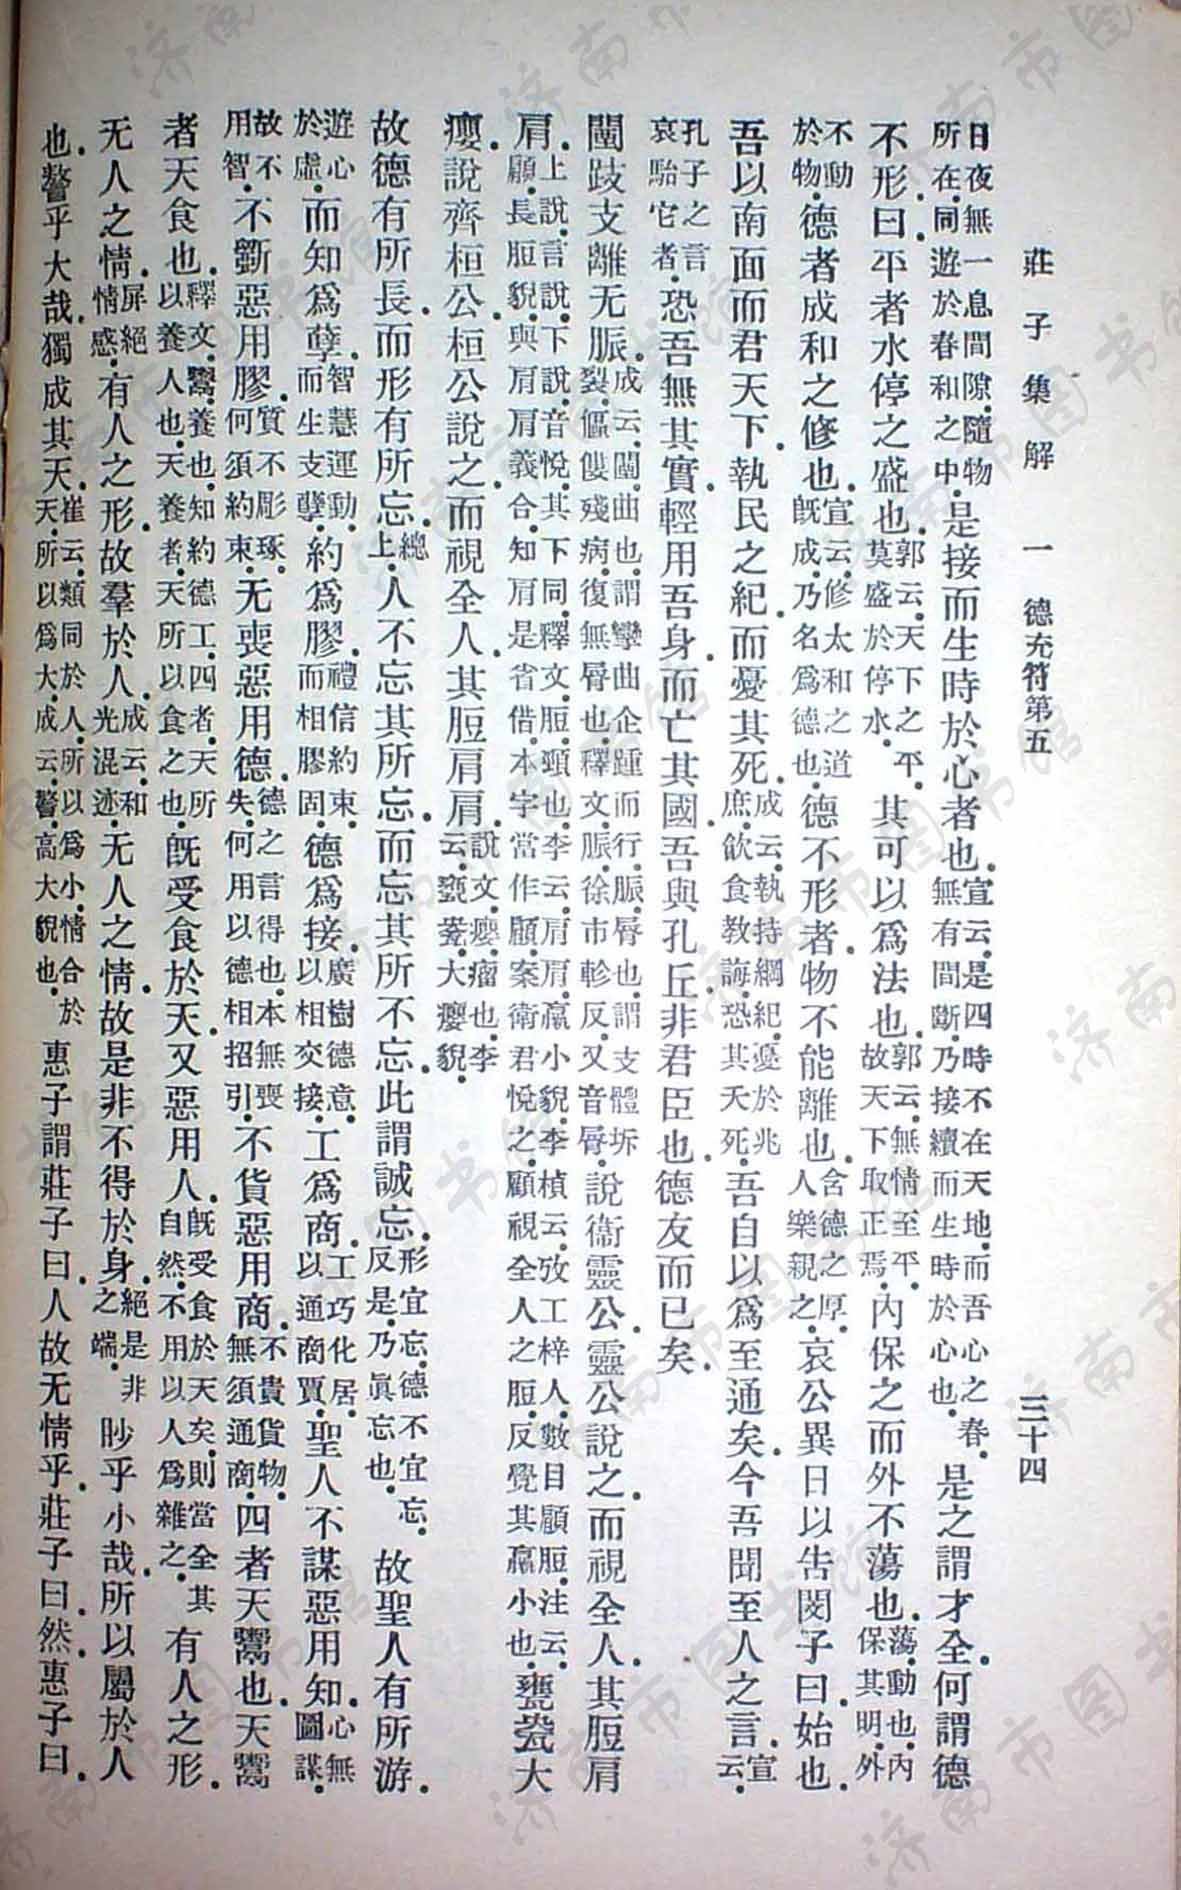 莊子集解　一　德充符第五　三十四
日夜無一息間隙.隨物所在.同遊於春和之中.是接而生時於心者也.宣云.是四時不在天地.而吾心之春.無有間斷.乃接續而生時於心也.是之謂才全.何謂德
不形.曰.平者水停之盛也.郭云.天下之平.莫盛於停水.其可以爲法也.郭云.無情至平.故天下取正焉.內保之而外不蕩也.蕩.動也.內保其明.外
不動於物.德者成和之修也.宣云.修太和之道既成.乃名爲德也.德不形者.物不能離也.含德之厚.人樂親之.哀公異日以告閔子曰.始也.
吾以南面而君天下.執民之紀.而憂其死.成云.執持綱紀.憂於兆庶.飲食教誨.恐其夭死.吾自以爲至通矣.今吾聞至人之言.宣云.
孔子之言哀駘它者.恐吾無其實.輕用吾身.而亡其國.吾與孔丘非君臣也.德友而已矣.
闉跂支離无脤.成云.闉.曲也.謂攣曲企踵而行.脤.脣也.謂支體坼裂.傴僂殘病.復無脣也.釋文.脤.徐市軫反.又音脣.說衞靈公.靈公說之.而視全人.其脰肩
肩.上說.言說.下說.音悅.其下同.釋文.脰.頸也.李云.肩肩.羸小貌.李楨云.攷工梓人.數目顧脰.注云.顧.長脰貌.與肩肩義合.知肩是省借.本字當作顧.案衛君悅之.顧視全人之脰.反覺其羸小也.甕㼜大
癭.說齊桓公.桓公說之.而視全人.其脰肩肩.說文.癭.瘤也.李云.甕㼜.大癭貌.
故德有所長.而形有所忘.總上.人不忘其所忘.而忘其所不忘.此謂誠忘.形宜忘.德不宜忘.反是.乃眞忘也.故聖人有所游.
遊心於虛.而知爲孽.智慧運動.而生支孽.約爲膠.禮信約束.而相膠固.德爲接.廣樹德意.以相交接.工爲商.工巧化居.以通商賈.聖人不謀.惡用知.心無圖謀.
故不用智.不斵.惡用膠.質不彫琢.何須約束.无喪.惡用德.德之言得也.本無喪失.何用以德相招引.不貨.惡用商.不貴貨物.無須通商.四者天鬻也.天鬻
者.天食也.釋文.鬻.養也.知約德工.四者.天所以養人也.天養者.天所以食之也.既受食於天.又惡用人.既受食於天矣.則當全其自然.不用以人爲雜之.有人之形.
无人之情.屏絕情感.有人之形.故羣於人.成云.和光混迹.无人之情.故是非不得於身.絕是非之端.眇乎小哉.所以屬於人
也.謷乎大哉.獨成其天.崔云.類同於人.所以爲小.情合於天.所以爲大.成云.謷.高大貌也.惠子謂莊子曰.人故无情乎.莊子曰.然.惠子曰.